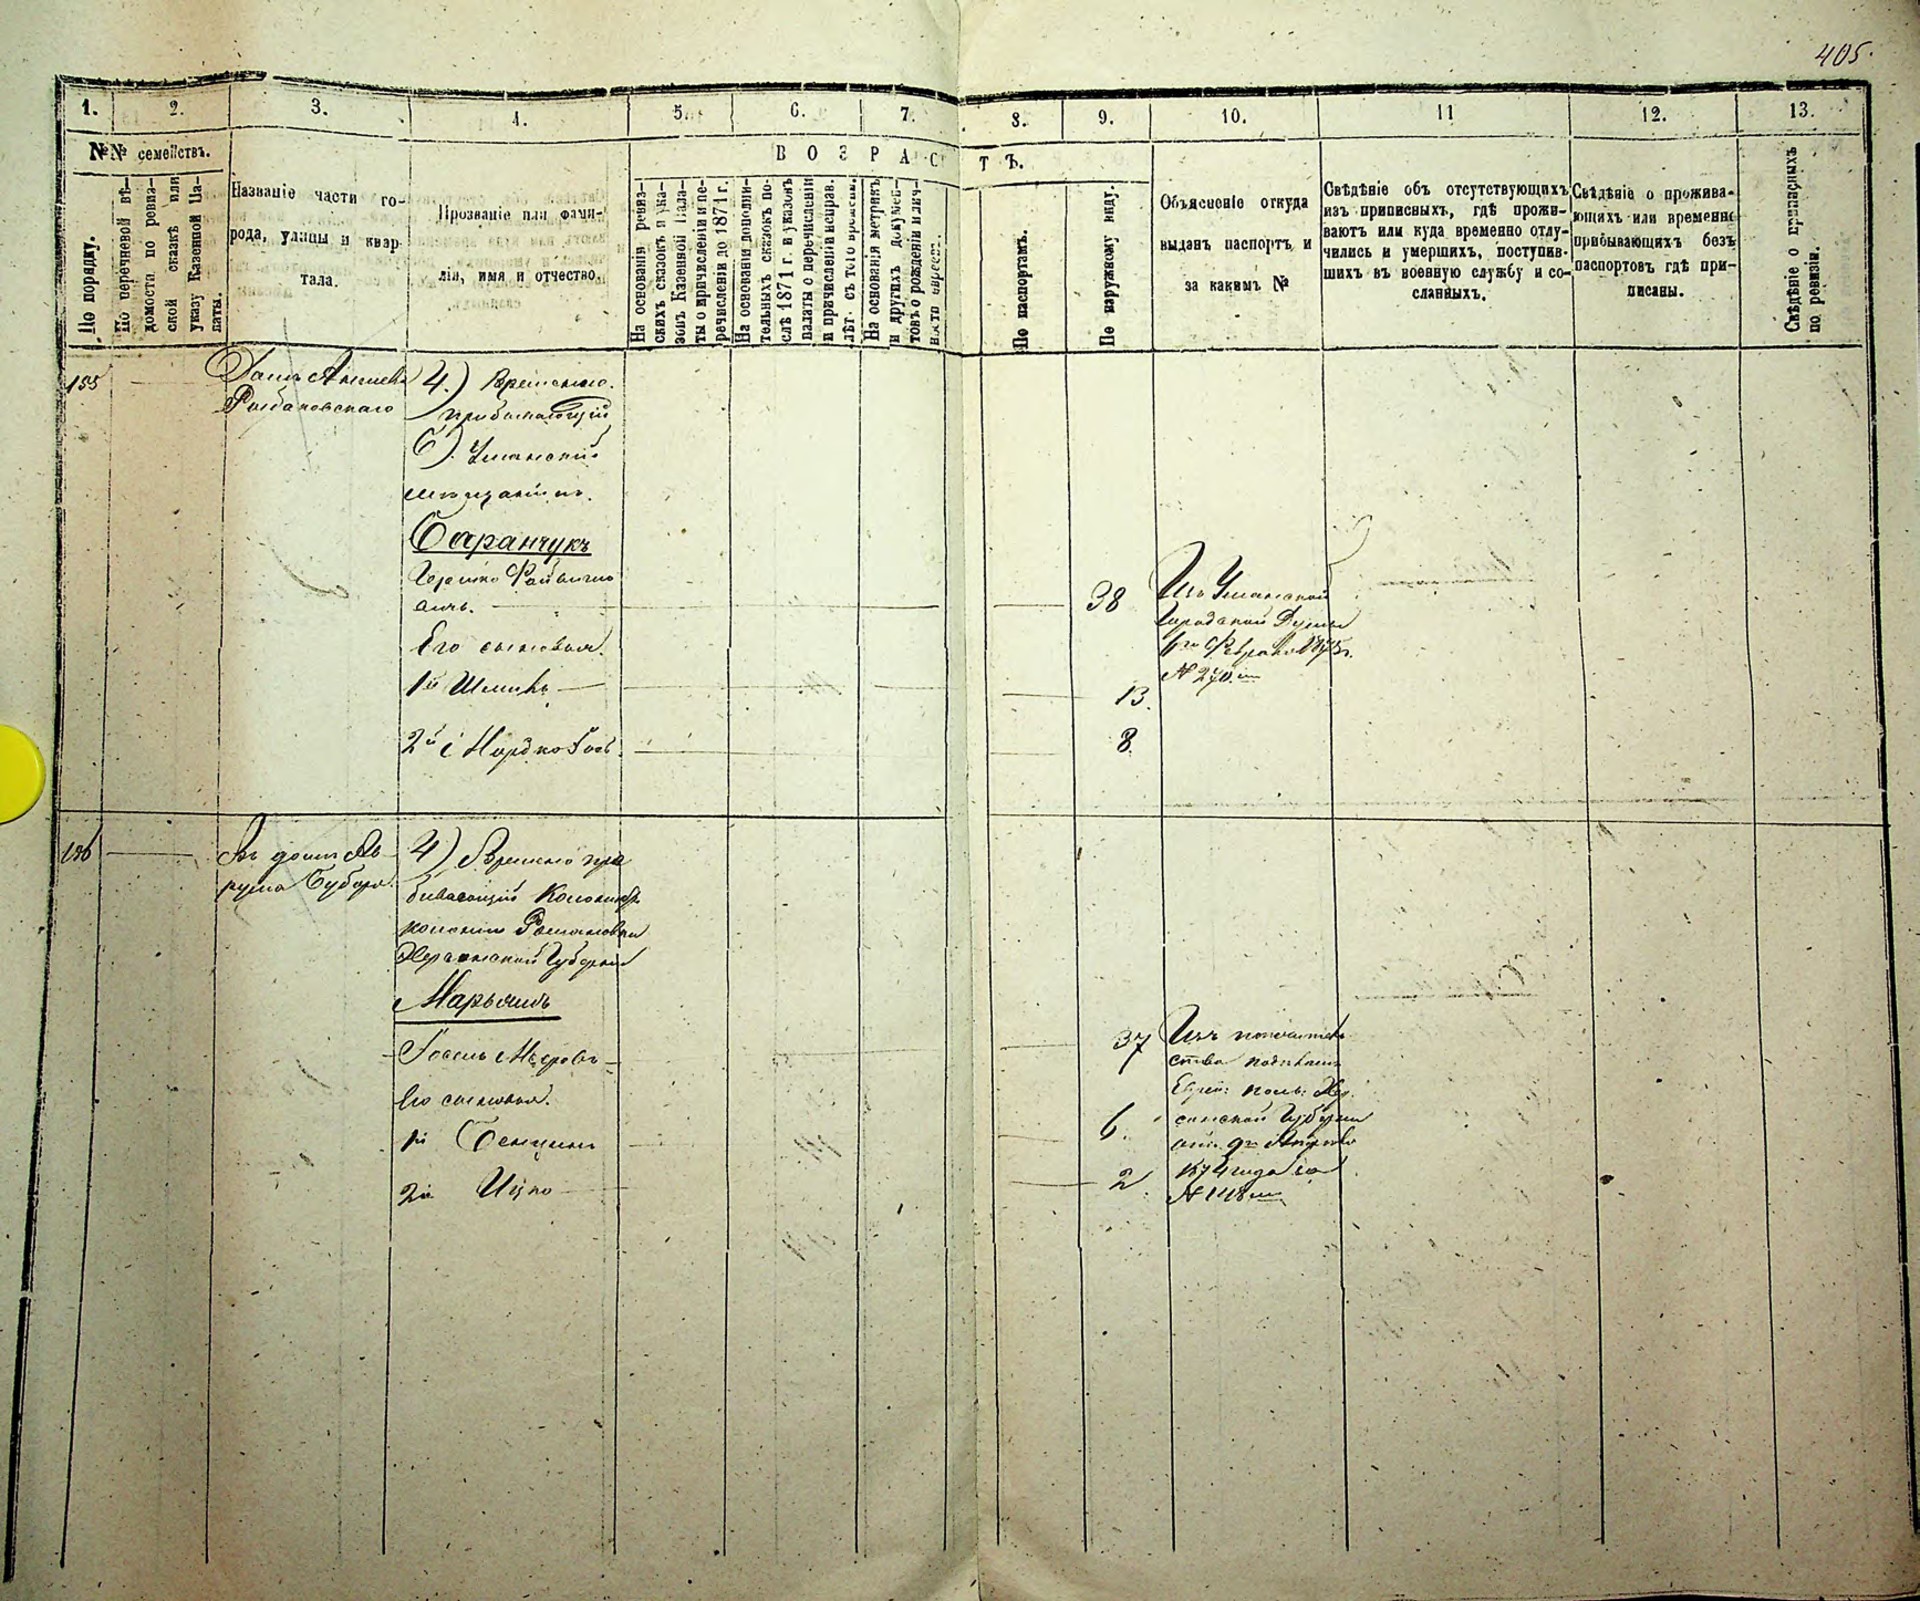 405.
1.
2.
3.
4.
5.
6.
7.
8.
9.
10.
11
12.
13.
№№ семействъ.
ВОЗРАСТЪ.
По порядку.
По перечневой вѣ-
домости по ревиз-
ской сказкѣ или
указу Казенной Па-
латы.
Названіе части го-
рода, улицы и квар-
тала.
Прозваніе или фами-
лія, имя и отчество.
На основаніи ревиз-
скихъ сказокъ и ука-
зовъ Казенной Пала-
ты о причисленіи и пе-
речисленіи до 1871 г.
На основаніи дополни-
тельныхъ сказокъ по-
слѣ 1871 г. и указовъ
палаты о перечисленіи
и причисленіи исправ.
лѣт. съ того времени.
На основаніи метрикъ
и другихъ докумен-
товъ о рожденіи и лич-
ности еврест.
По паспортамъ.
По наружному виду.
Объясненіе откуда
выданъ паспортъ и
за какимъ №
Свѣдѣніе объ отсутствующихъ
изъ приписныхъ, гдѣ прожи-
ваютъ или куда временно отлу-
чились и умершихъ, поступив-
шихъ въ военную службу и со-
сланныхъ.
Свѣдѣніе о прожива-
ющихъ или временно
прибывающихъ безъ
паспортовъ гдѣ при-
писаны.
Свѣдѣніе о приписныхъ
по ревизіи.
155
4.) Временно.
прибывающій
Б). Уманскій
мѣщанинъ.
Баранчукъ
Гершко
38
Его сыновья.
1й Шмилъ
13.
2й Мордко
8.
Изъ Уманской
Городской Думы
Февраля 1875 г.
№ 270
156
Въ домѣ
4) Временно при
бывающій Колонистъ
колоніи Романовки
Херсонской Губерніи
Марьямъ
37
Его сыновья.
1й Бенціонъ
6.
2й Ицко
2
Изъ попечитель
ства
Херсонской Губерніи
1874 года за